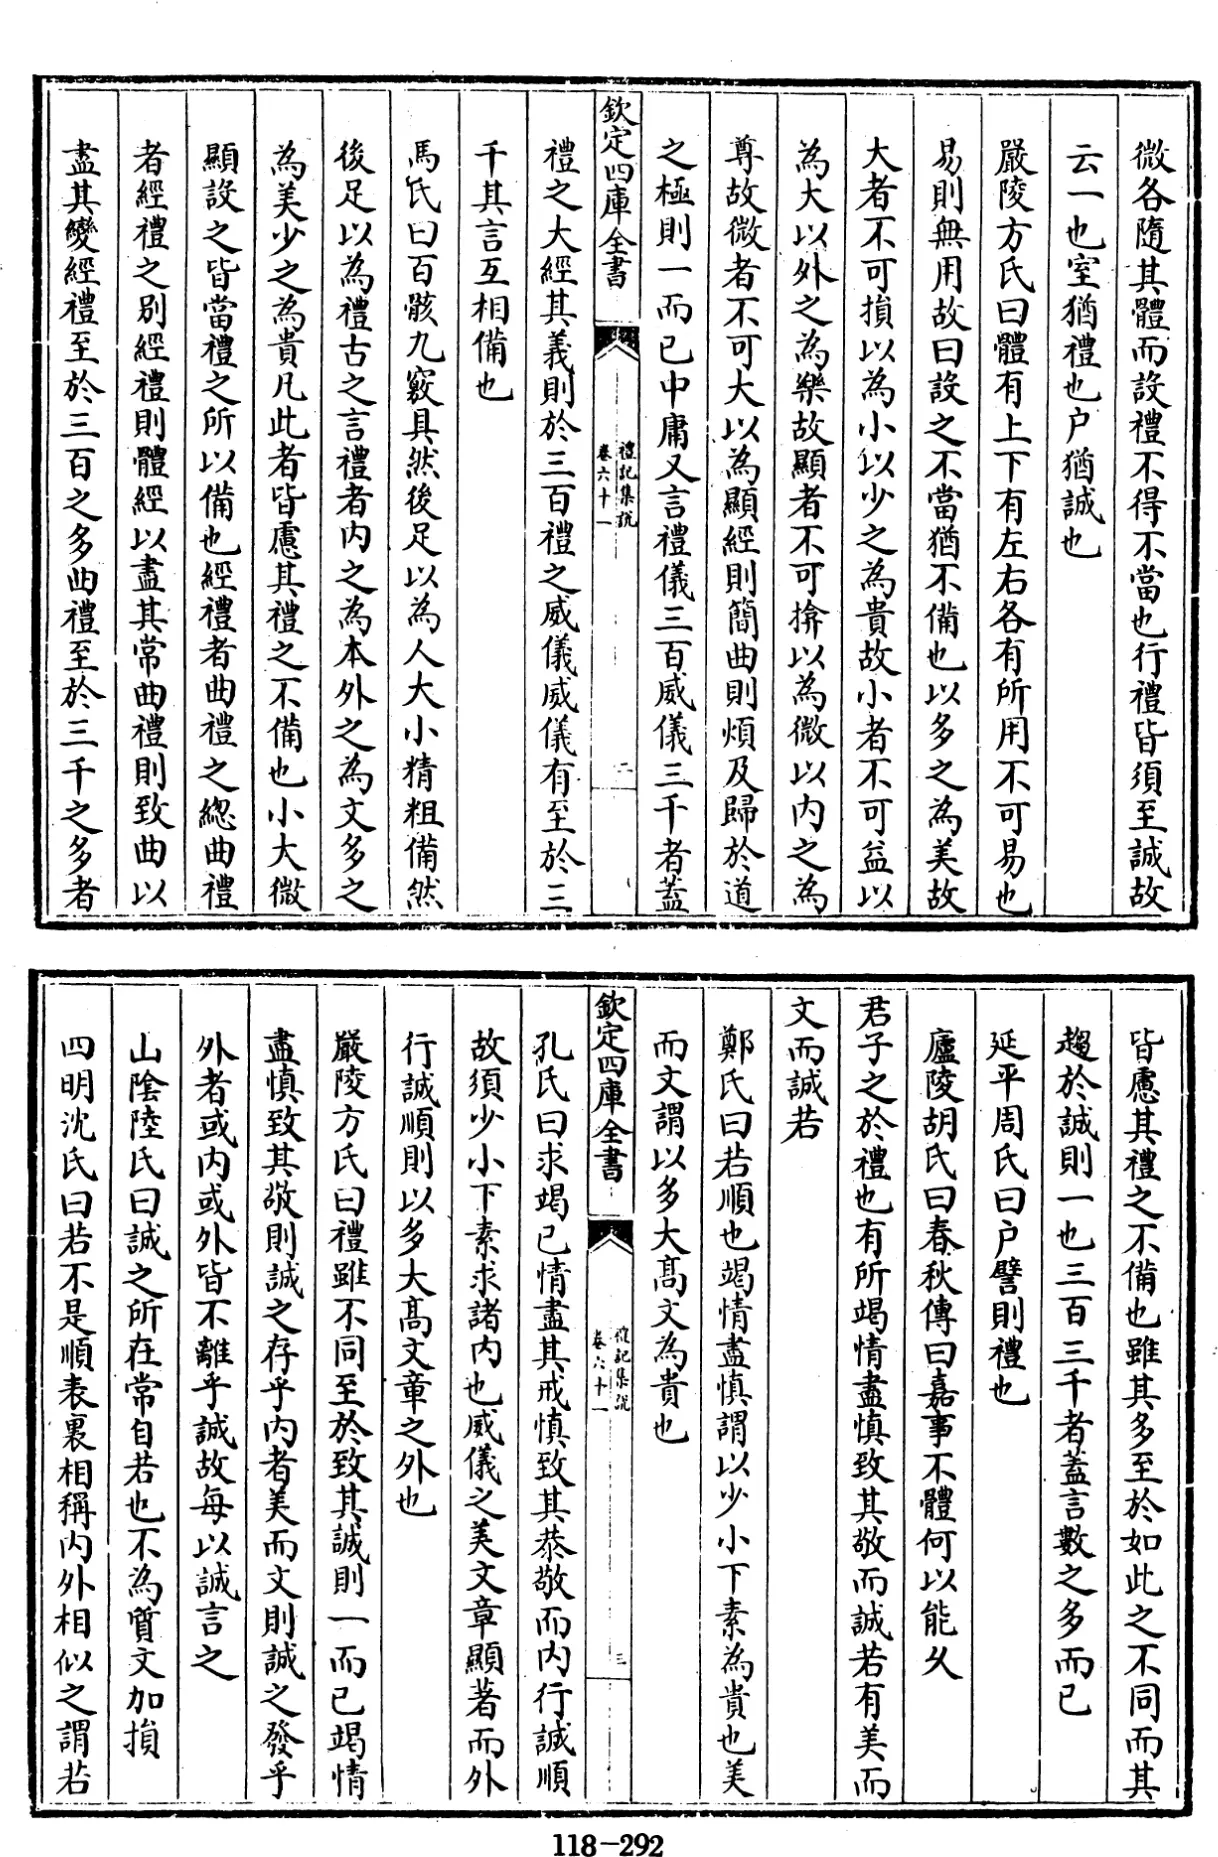 微各隨其體而設禮不得不當也行禮皆須至誠故
云一也室猶禮也户猶誠也
嚴陵方氏曰體有上下有左右各有所用不可易也
易則無用故曰設之不當猶不備也以多之為美故
大者不可損以為小以少之為貴故小者不可益以
為大以外之為樂故顯者不可揜以為微以内之為
尊故微者不可大以為顯經則簡曲則煩及歸於道
之極則一而已中庸又言禮儀三百威儀三千者蓋
欽定四庫全書
禮記集説
卷六十一
二
禮之大經其義則於三百禮之威儀威儀有至於三
千其言互相備也
馬氏曰百骸九竅具然後足以為人大小精粗備然
後足以為禮古之言禮者内之為本外之為文多之
為美少之為貴凡此者皆慮其禮之不備也小大微
顯設之皆當禮之所以備也經禮者曲禮之緫曲禮
者經禮之别經禮則體經以盡其常曲禮則致曲以
盡其變經禮至於三百之多曲禮至於三千之多者
皆慮其禮之不備也雖其多至於如此之不同而其
趨於誠則一也三百三千者蓋言數之多而已
延平周氏曰户譬則禮也
廬陵胡氏曰春秋傳曰嘉事不體何以能久
君子之於禮也有所竭情盡慎致其敬而誠若有美而
文而誠若
鄭氏曰若順也竭情盡慎謂以少小下素為貴也美
而文謂以多大髙文為貴也
欽定四庫全書
禮記集説
卷六十一
三
孔氏曰求竭己情盡其戒慎致其恭敬而内行誠順
故須少小下素求諸内也威儀之美文章顯著而外
行誠順則以多大髙文章之外也
嚴陵方氏曰禮雖不同至於致其誠則一而已竭情
盡慎致其敬則誠之存乎内者美而文則誠之發乎
外者或内或外皆不離乎誠故每以誠言之
山陰陸氏曰誠之所在常自若也不為質文加損
四明沈氏曰若不是順表裏相稱内外相似之謂若
118-292